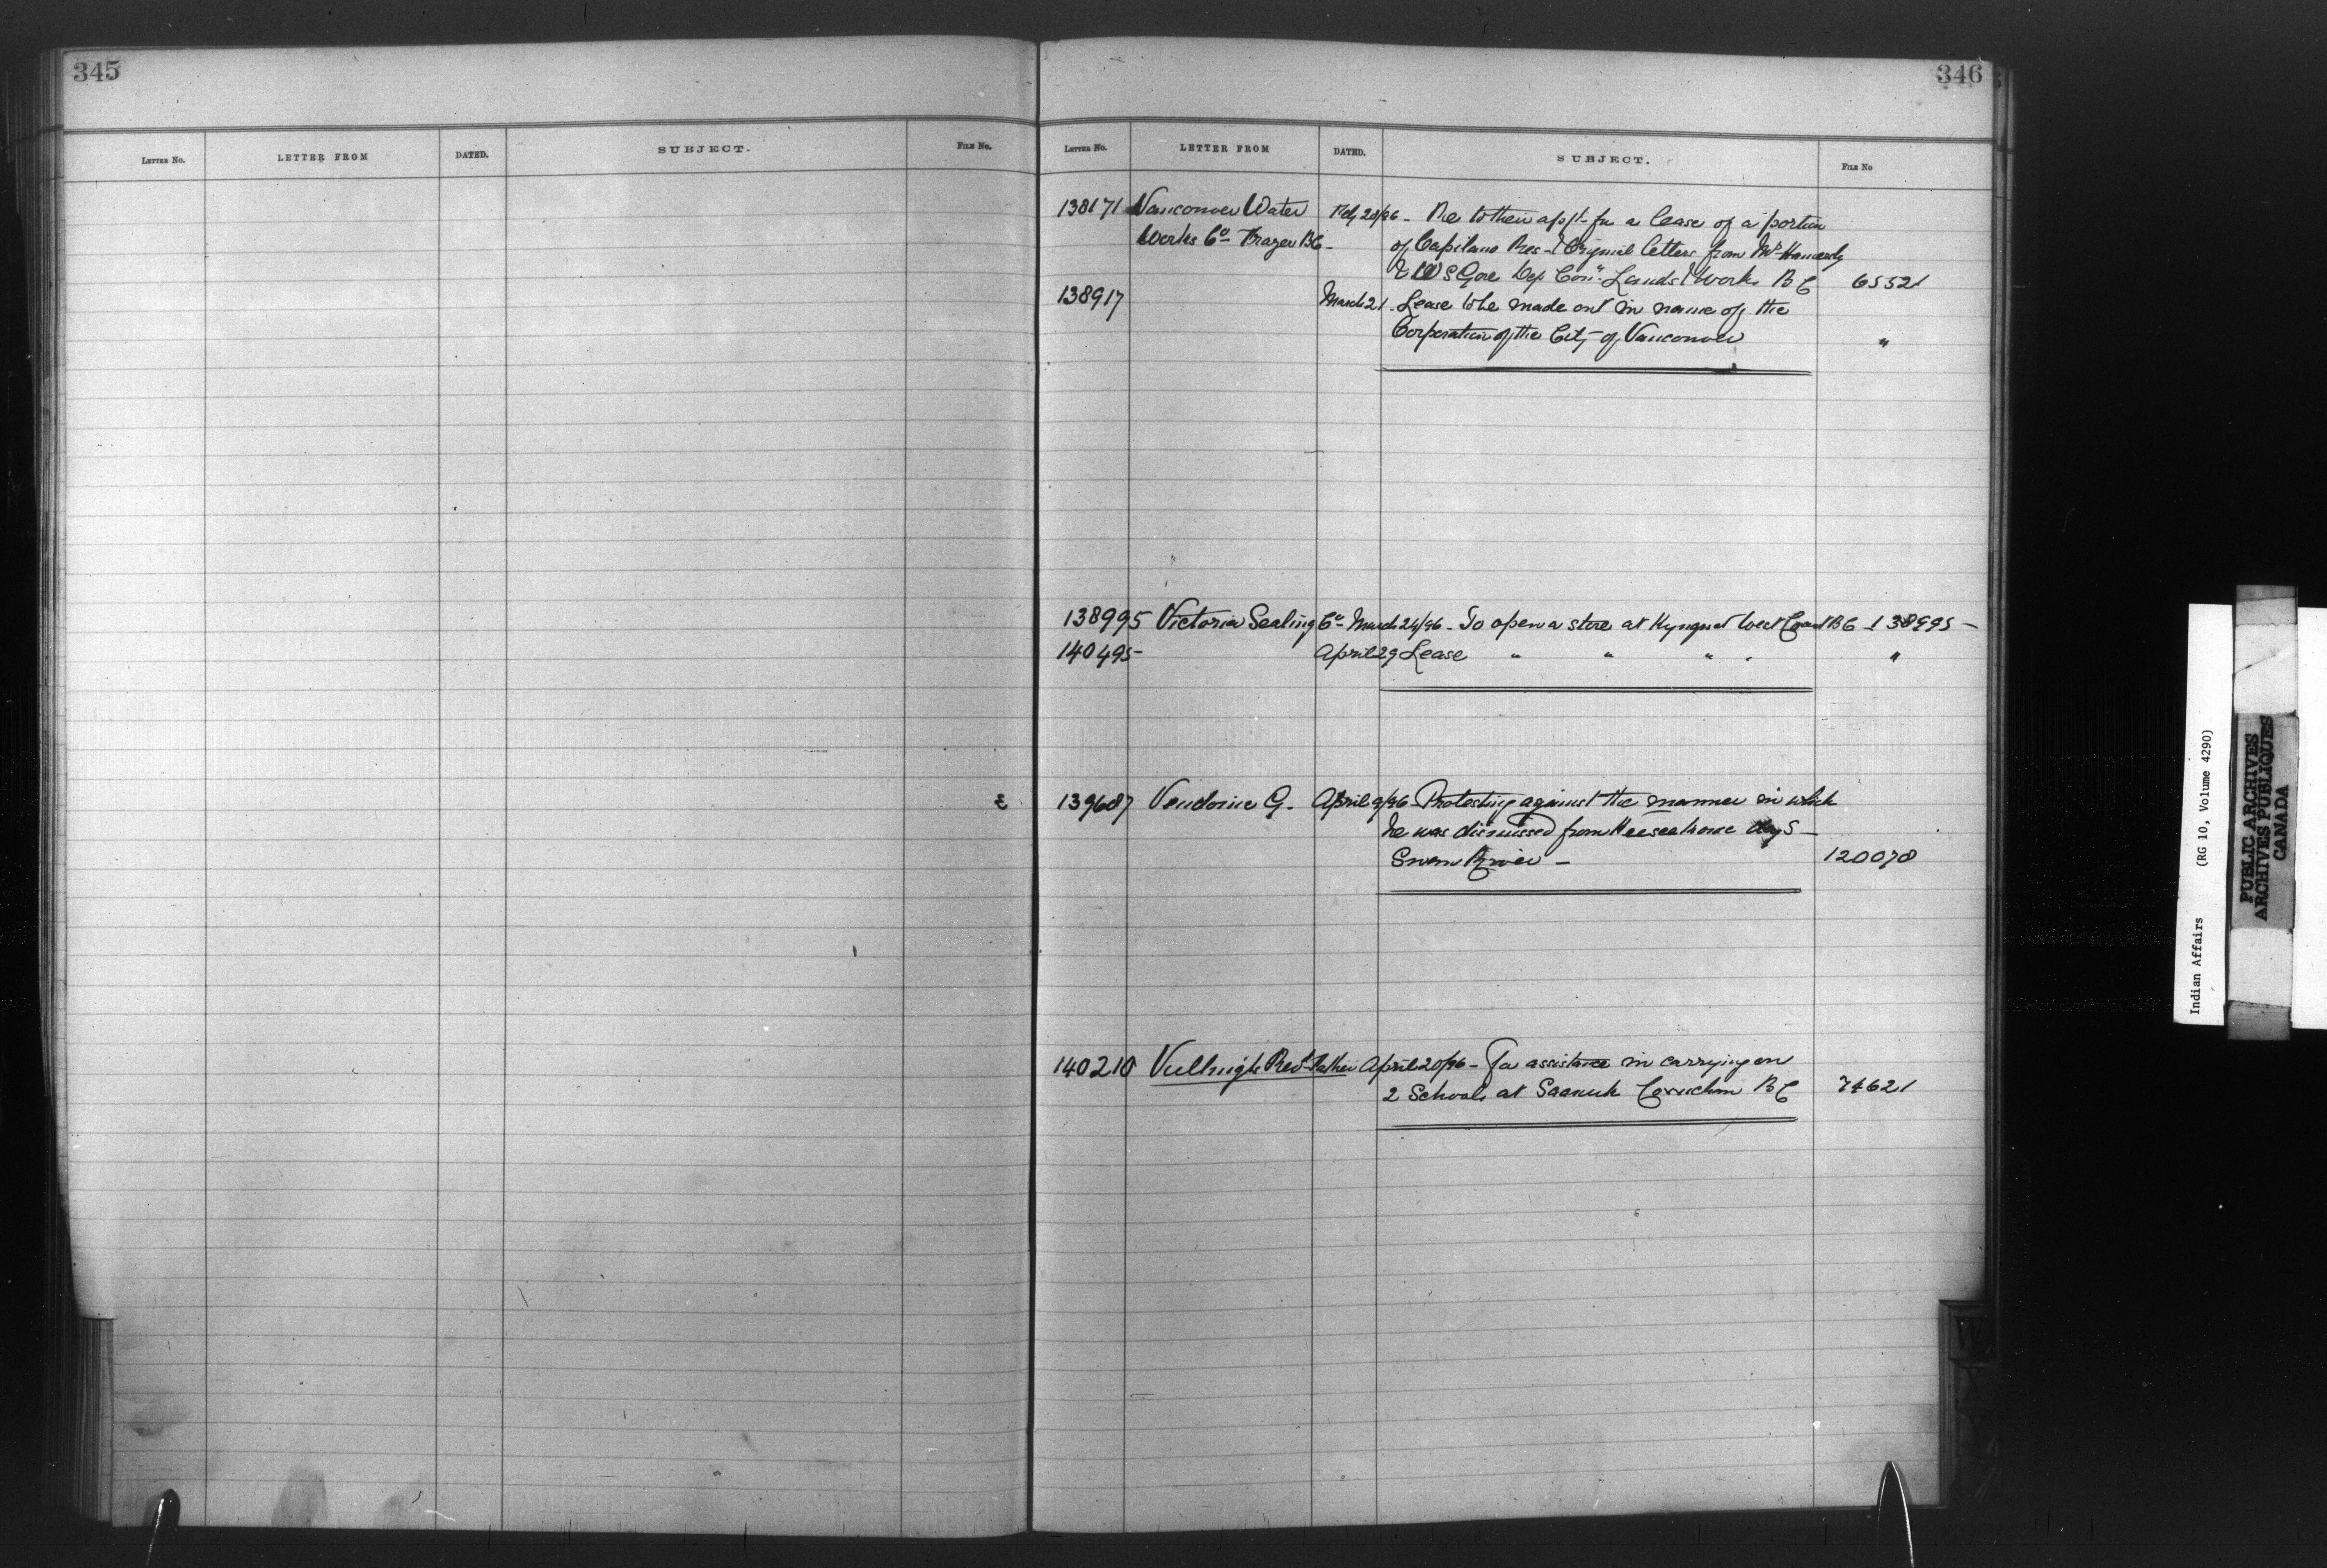 345
346
LETTER NO. LETTER FROM DATED. SUBJECT. FILE NO.
LETTER NO. LETTER FROM DATED. SUBJECT. FILE NO
138171 Vancouver Water Feby 20/96 - Re to their appl- for a lease of a portion
Works Co - Frazer BC - of Capilano Res - & Original letters from Mr
& W S Gore Dep Comr Lands & Works B C 65521
138917 March 21 - Lease to be made out in name of the
Corporation of the City of Vancouver "
138995 Victoria Sealing Co - March 24/96 - To open a store at Kyuquot West Coast BC - 138995 -
140495 - April 29 Lease " " " " "
139687 Vendome G. April 9/96 - Protesting against the manner in which
he was dismissed from day S -
Swan River - 120078
140210 Rev Father April 20/96 - For assistance in carrying on
2 Schools at Saanich Cowichan B C 74621
W
Indian Affairs (RG 10, Volume 4290)
PUBLIC ARCHIVES
ARCHIVES PUBLIQUES
CANADA